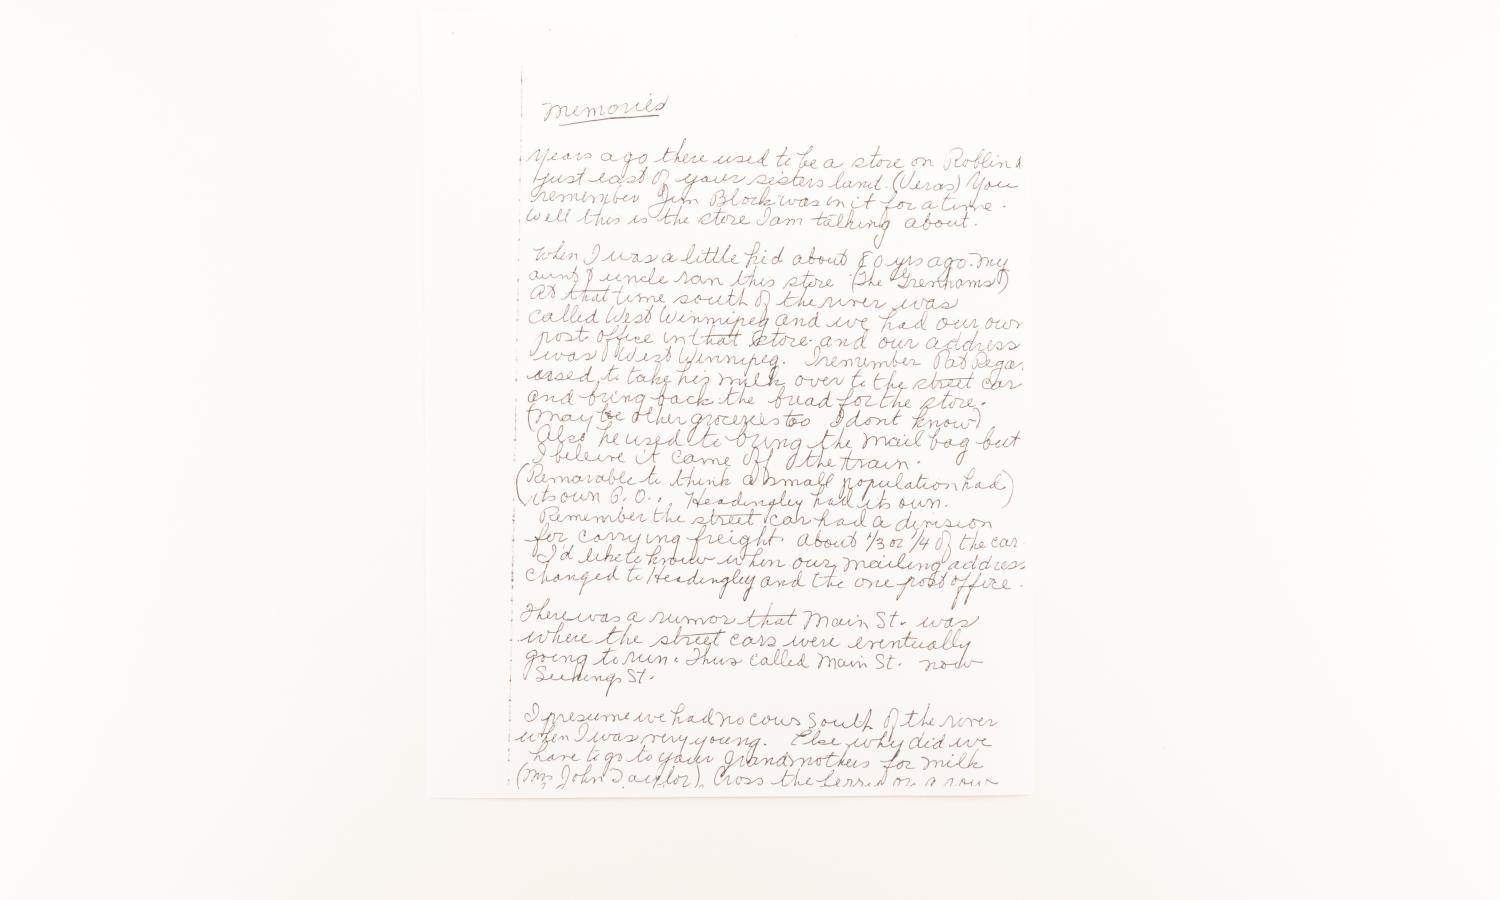 Memories
Years ago there used to be a store on Roblin
just east of your sisters land. (Veras) You
remember Jim Block was in it for a time.
Well this is the store I am talking about.
When I was a little kid about 80 yrs ago. My
aunt & uncle ran this store (The Grenhams)
At that time south of the river was
called West Winnipeg and we had our own
post office in that store and our address
was West Winnipeg. I remember Pat
used to take his milk over to the street car
and bring back the bread for the store.
(may be other groceries too I dont know)
Also he used to bring the mail bag but
I beleive it came off the train.
(Remarable to think a small population had)
its own P.O.. Headingley had its own.
Remember the street car had a division
for carrying freight. About 1/3 or 1/4 of the car
I'd like to know when our mailing address
changed to Headingley and the one post office.
There was a rumor that Main St. was
where the street cars were eventually
going to run. Thus called Main St. now
St.
I presume we had no cows south of the river
when I was very young. Else why did we
have to go to your grandmothers for milk
(Mrs John Taylor). Cross the on a row